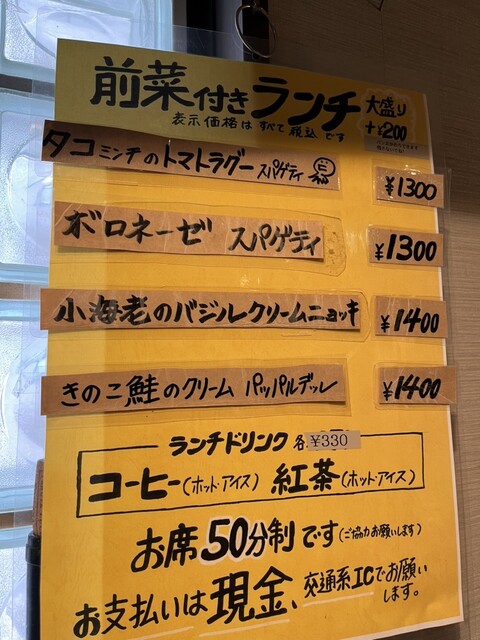 前菜付きランチ 大盛り
+¥200
表示価格はすべて税込です
タコミンチのトマトラグー スパゲティ ¥1300
ボロネーゼ スパゲティ ¥1300
小海老のバジルクリームニョッキ ¥1400
きのこ鮭のクリーム パッパルデッレ ¥1400
ランチドリンク 各 ¥330
コーヒー(ホット・アイス) 紅茶(ホット・アイス)
お席50分制です(ご協力お願いします)
お支払いは現金、交通系ICでお願い
します。